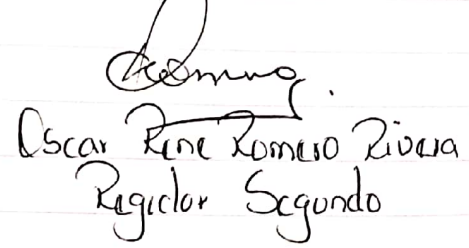 Oscar Rene Romero Rivera
Regidor Segundo